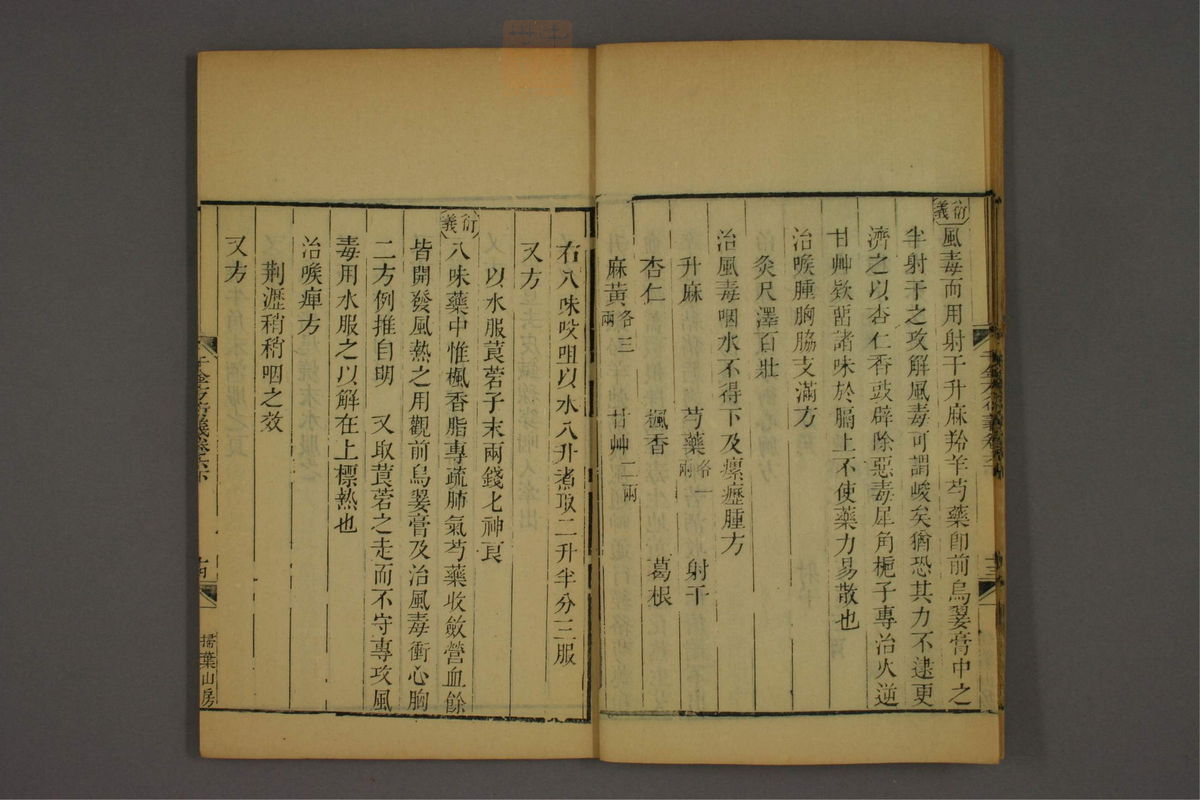 衍義
風毒而用射干升麻羚羊芍藥即前烏翣膏中之
半射干之攻解風毒可謂峻矣猶恐其力不逮更
濟之以杏仁香豉辟除惡毒犀角梔子專治火逆
甘艸欵畱諸味於膈上不使藥力易散也
治喉腫胸脇支滿方
灸尺澤百壯
治風毒咽水不得下及瘰癧腫方
升麻 芍藥各一兩 射干
杏仁 楓香 葛根
麻黃各三兩 甘艸二兩
右八味㕮咀以水八升煮取二升半分三服
又方
以水服莨菪子末兩錢匕神良
衍義
八味藥中惟楓香脂專疏肺氣芍藥收斂營血餘
皆開發風熱之用觀前烏翣膏及治風毒衝心胸
二方例推自明 又取莨菪之走而不守專攻風
毒用水服之以解在上標熱也
治喉痺方
荆瀝稍稍咽之效
又方
千金方衍義卷六下
十四
掃葉山房